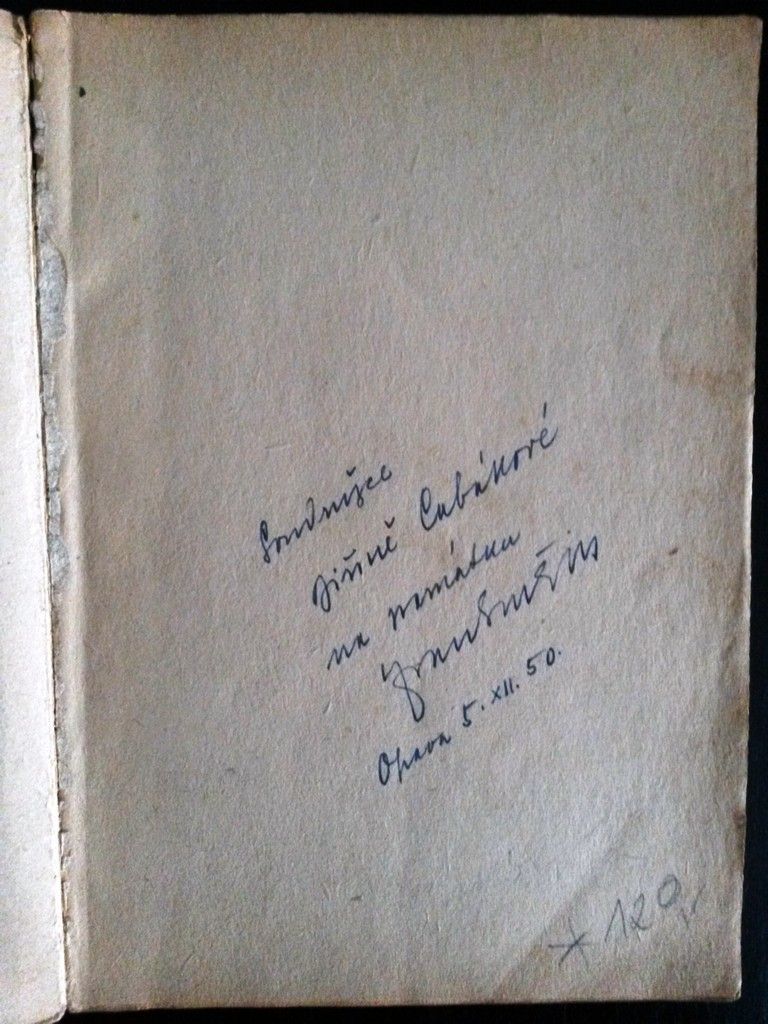 Soudružce
Jiřině Cabákové
na památku
Opava 5. XII. 50.
* 120,